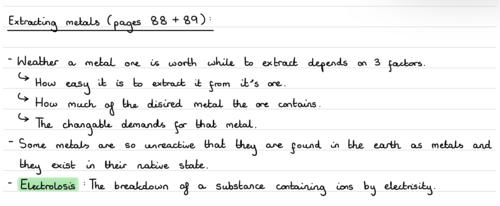 Extracting metals (pages 88 + 89):
- Weather a metal ore is worth while to extract depends on 3 factors.
↳ How easy it is to extract it from it's ore.
↳ How much of the disired metal the ore contains.
↳ The changable demands for that metal.
- Some metals are so unreactive that they are found in the earth as metals and
they exist in their native state.
- Electrolosis : The breakdown of a substance containing ions by electrisity.